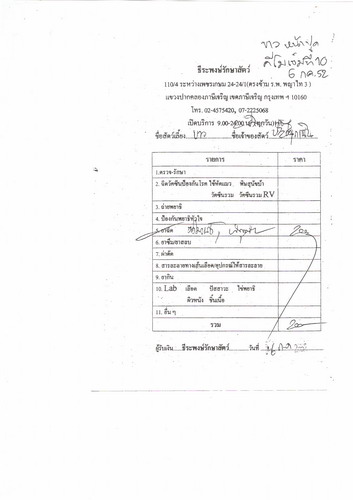 ขาว
คีโมเข็มที่ 10
6 กค. 52
ธีระพงษ์รักษาสัตว์
110/4 ระหว่างเพชรเกษม 24-24/1(ตรงข้าม ร.พ. พญาไท 3 )
แขวงปากคลองภาษีเจริญ เขตภาษีเจริญ กรุงเทพ ฯ 10160
โทร. 02-4575420, 07-2225068
เปิดบริการ 9.00-24.00
ชื่อสัตว์เลี้ยง ขาว ชื่อเจ้าของสัตว์
รายการ ราคา
1.ตรวจ-รักษา
2. ฉีดวัคซีนป้องกันโรค ไข้หัดแมว พิษสุนัขบ้า
วัคซีนรวม วัคซีนรวม RV
3. ถ่ายพยาธิ
4. ป้องกันพยาธิหัวใจ
5. ยาฉีด 200
6. ยาซึม/ยาสลบ
7. ผ่าตัด
8. สารละลายทางเส้นเลือด/อุปกรณ์ให้สารละลาย
9. ยากิน
10. Lab เลือด ปัสสาวะ ไข่พยาธิ
ผิวหนัง ชิ้นเนื้อ
11. อื่น ๆ
รวม 200
ผู้รับเงิน ธีระพงษ์รักษาสัตว์ วันที่